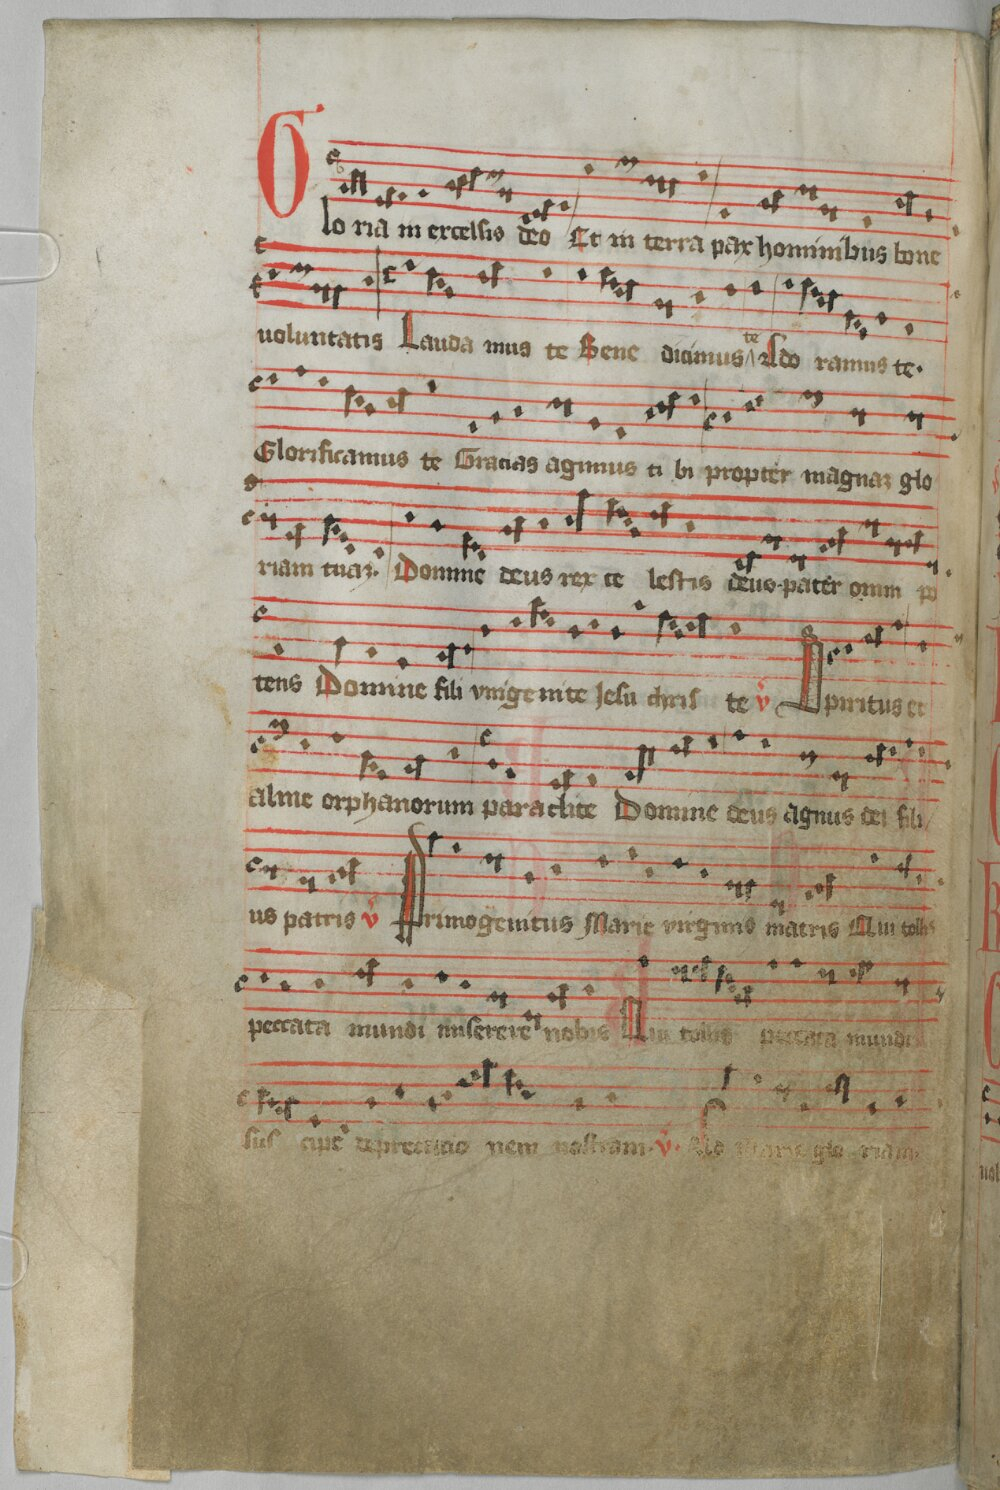 Glo ria in excelsis deo Et in terra pax hominibus bone
voluntatis Lauda mus te Bene dicimus te Ado ramus te.
Glorificamus te Gracias agimus ti bi propter magnaꝫ glo
riam tuaꝫ. Domine deus rex ce lestis deus pater omni po
tens Domine fili vnige nite Jesu chris te v̄ Spiritus et
alme orphanorum paraclite Domine deus agnus dei fili
us patris v̄ Primogenitus Marie virginis matris Qui tollis
peccata mundi miserere nobis Qui tollis peccata mundi
sus cipe deprecacio nem nostram. v̄. Ad marie glo riam.